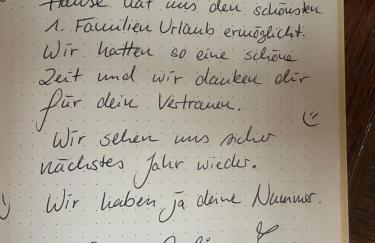 Hause hat uns den schönsten
1. Familien Urlaub ermöglicht.
Wir hatten so eine schöne
Zeit und wir danken dir
für dein Vertrauen.
Wir sehen uns sicher
nächstes Jahr wieder.
Wir haben ja deine Nummer.